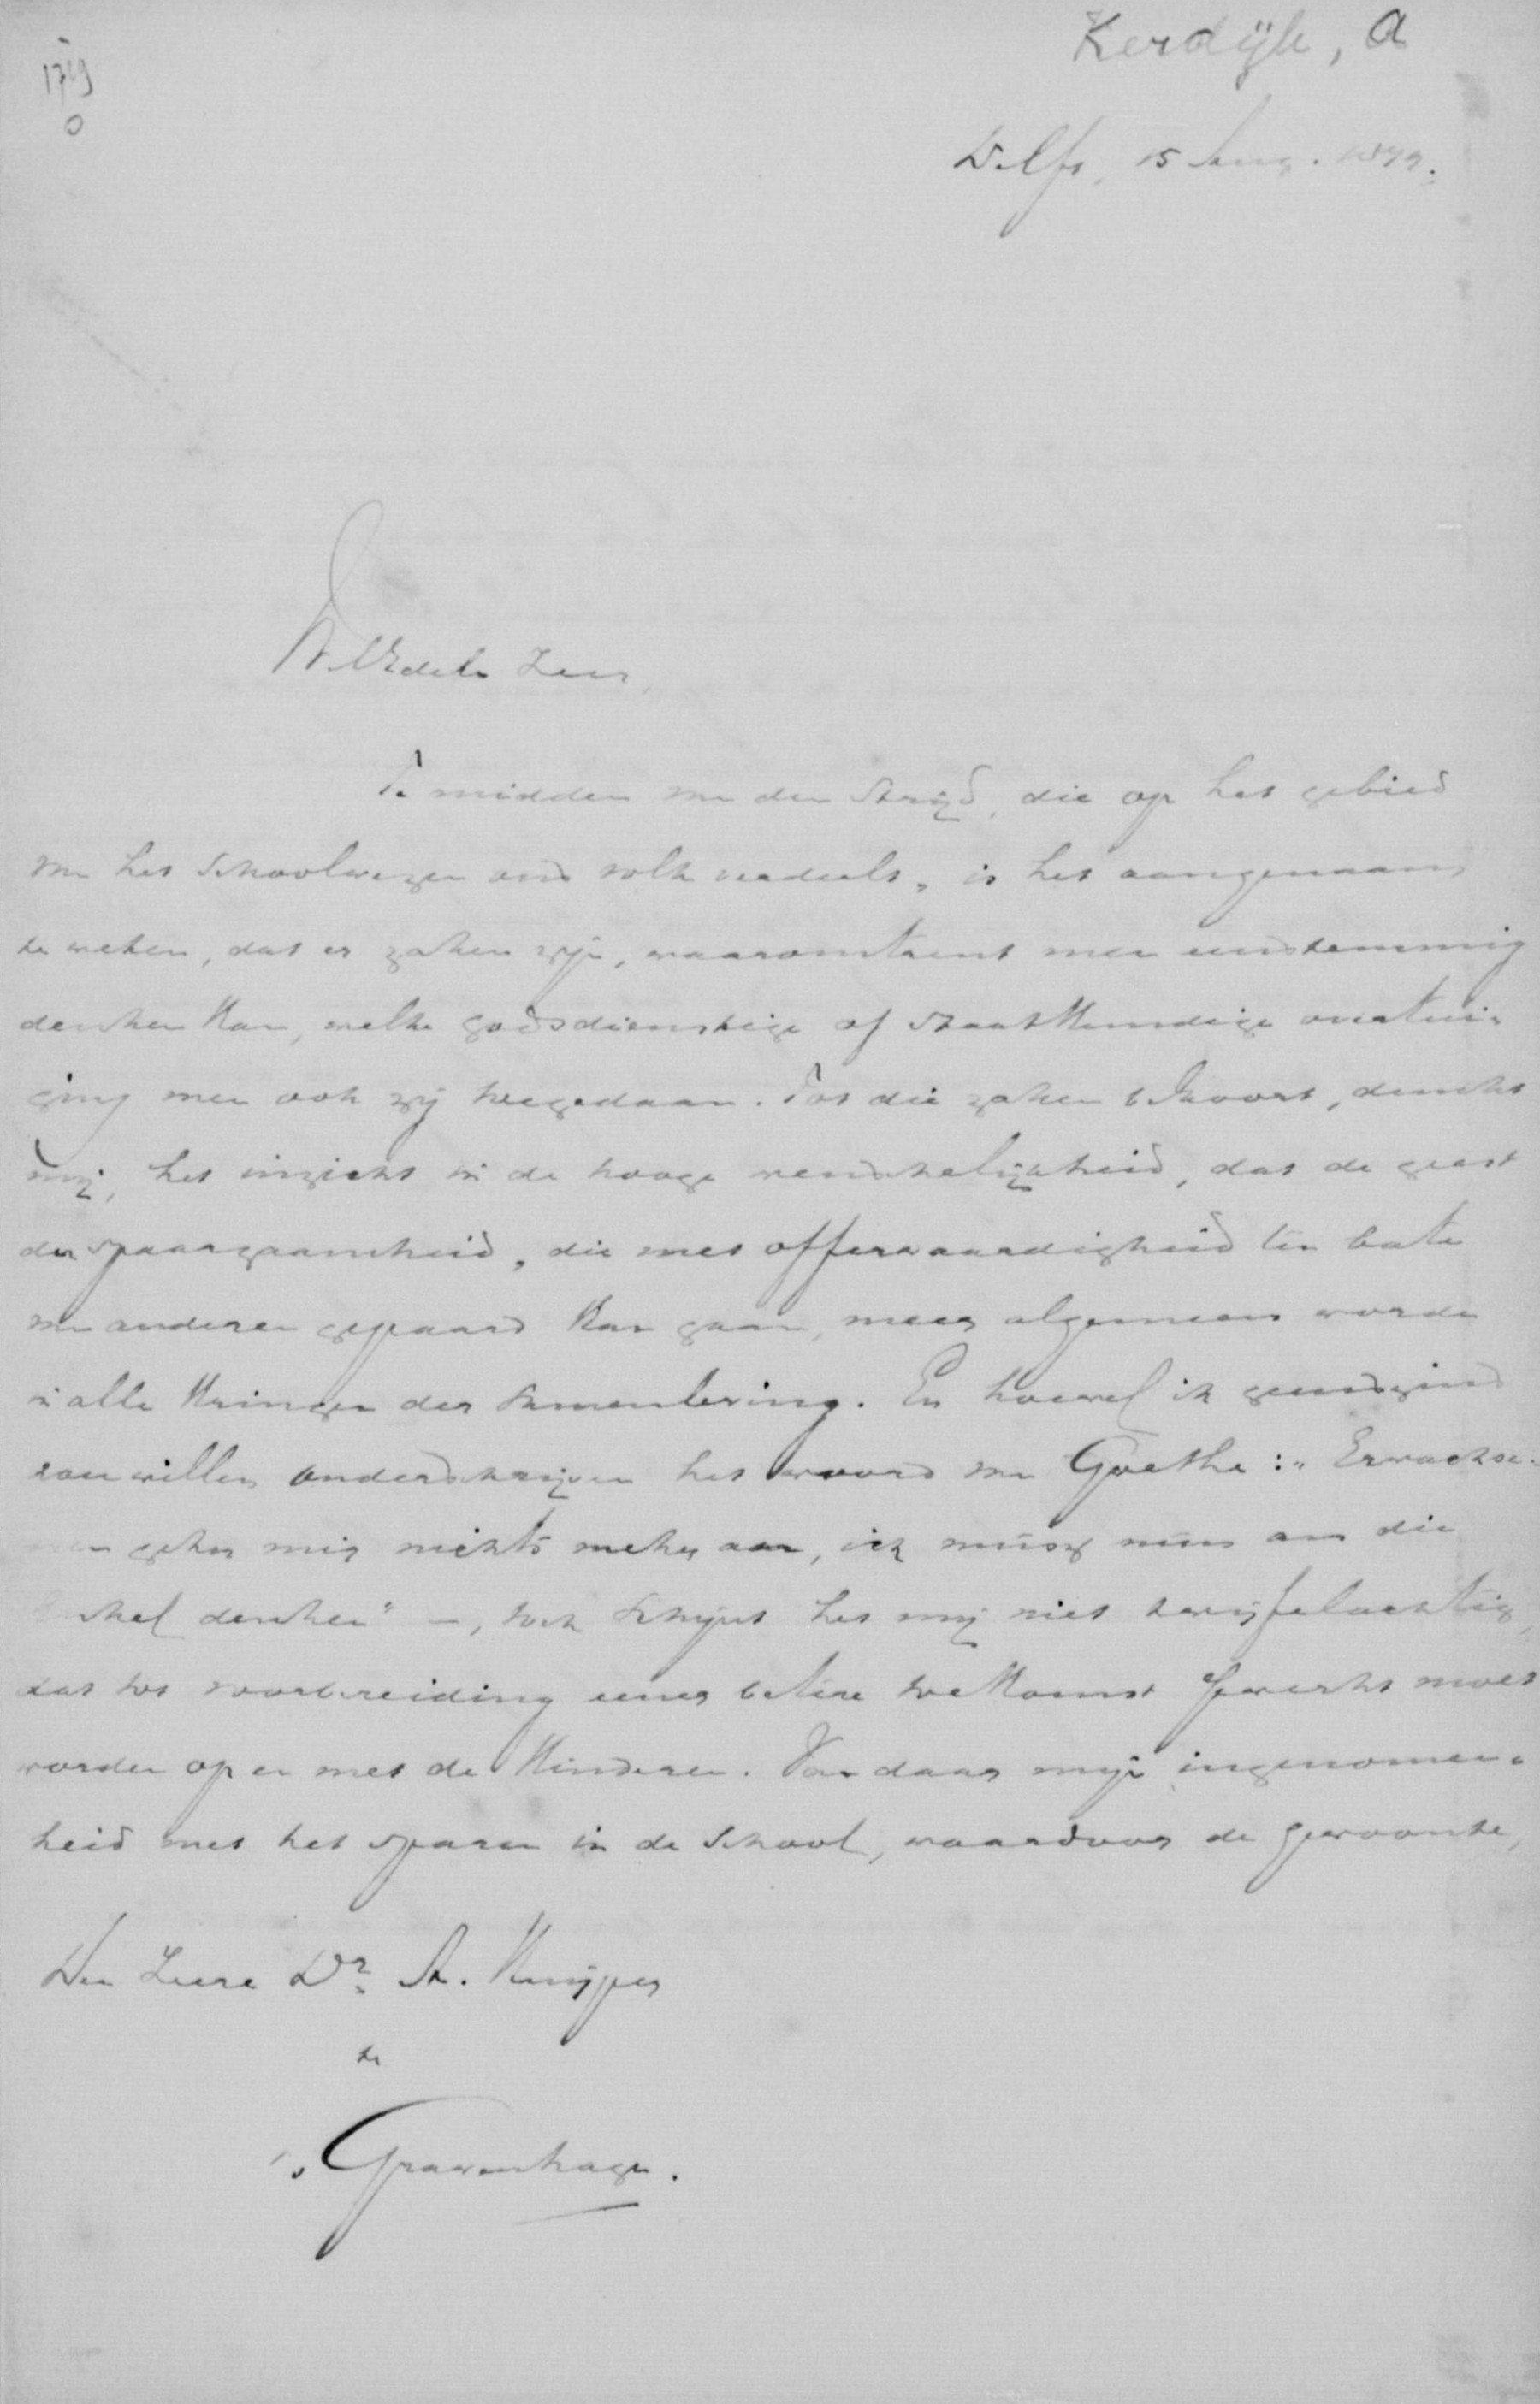 Kerdijk, A
1719
0
Delft, 15 Aug. 1879.
WelEdele Heer,
Te midden van den strijd, die op het gebied
van het schoolwezen ons volk verdeelt, is het aangenaam
te weten, dat er zaken zijn, waaromtrent men eenstemmig
denken kan, welke godsdienstige of staatkundige overtui-
ging men ook zij toegedaan. Tot die zaken behoort, dunkt
mij, het inzicht in de hooge wenschelijkheid, dat de geest
der spaarzaamheid, die met offervaardigheid ten bate
van anderen gepaard kan gaan, meer algemeen worde
in alle kringen der samenleving. En hoewel ik geenszins
zou willen onderschrijven het woord van Goethe: "Erwachse-
nen gehen mir nichts mehr an, ich muss nun an die
Enkel denken" —, toch schijnt het mij niet twijfelachtig,
dat tot voorbereiding eener betere toekomst gewerkt moet
worden op en met de kinderen. Van daar mijn ingenomen-
heid met het sparen in de school, waardoor de gewoonte,
Den Heere Dr. A. Kuijper
te
's Gravenhage.